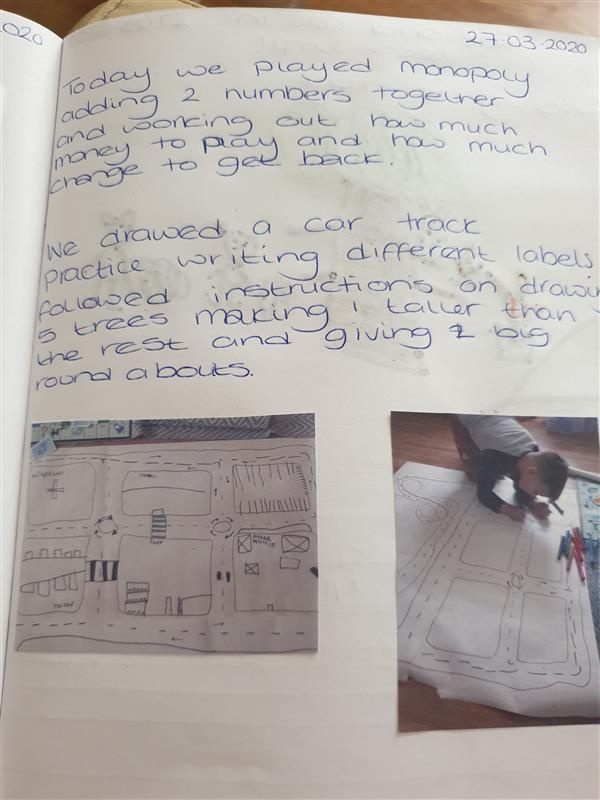 020
27.03.2020
Today we played monopoly
adding 2 numbers together
and working out how much
money to play and how much
change to get back.
We drawed a car track
practice writing different labels
followed instructions on drawin
5 trees making 1 taller than
the rest and giving 2 big
round abouts.